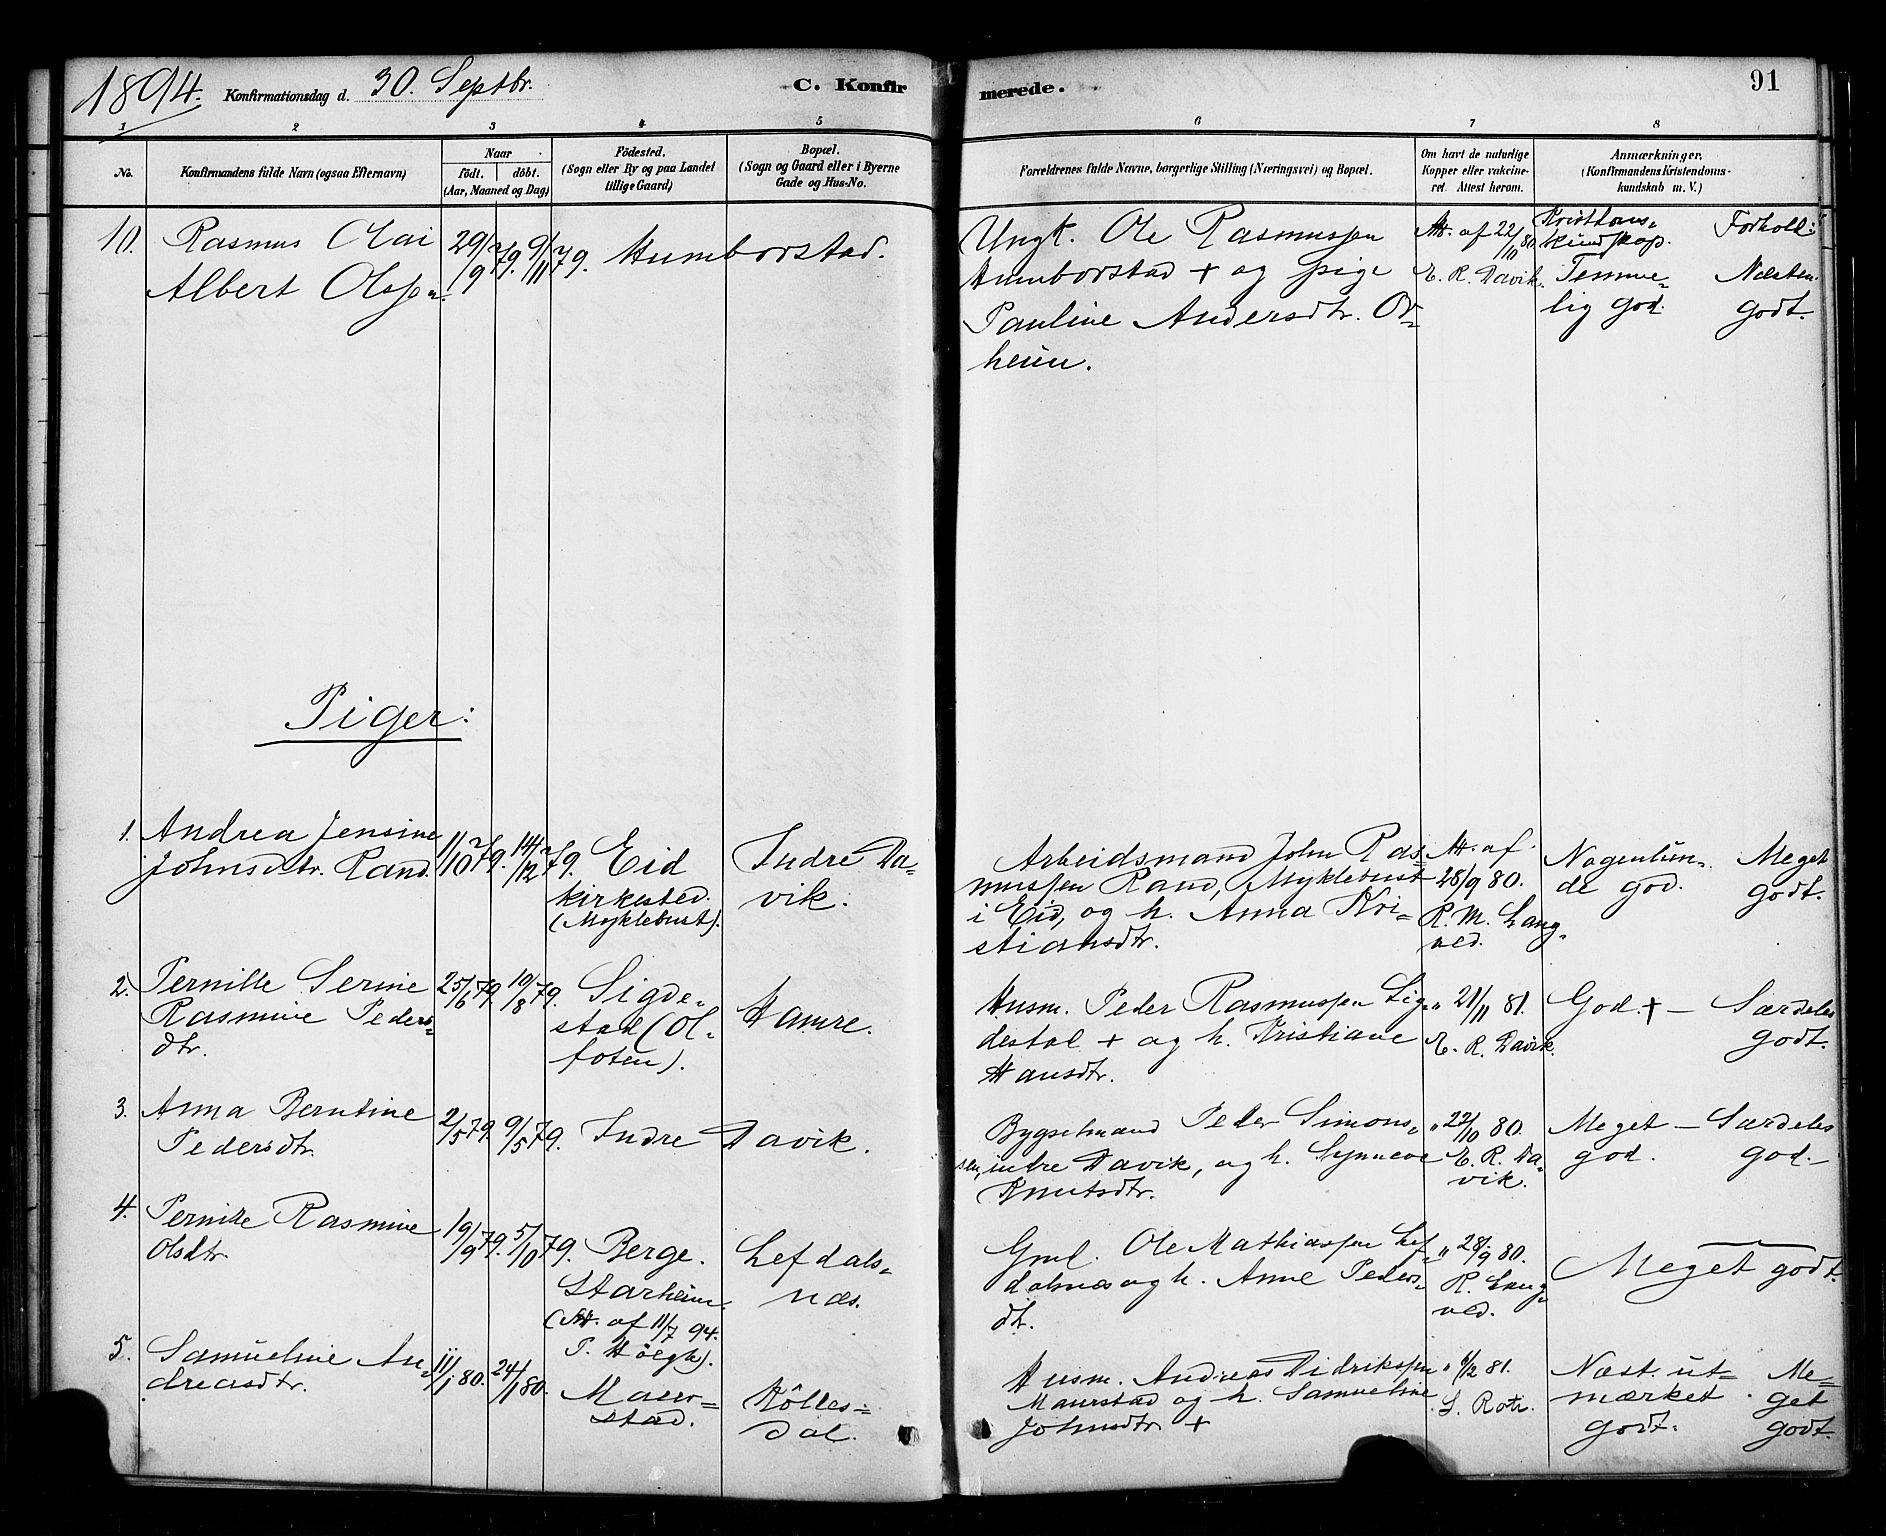 1894. Konfirmationsdag d. 30. Septbr. C. Konfirmerede. 91
1 2 3 4 5 6 7 8
No.
Konfirmandens fulde Navn (ogsaa Efternavn)
Naar
födt. döbt.
(Aar, Maaned og Dag)
Födested.
(Sogn eller By og paa Landet
tillige Gaard)
Bopæl.
(Sogn og Gaard eller i Byerne
Gade og Hus-No.
Forældrenes fulde Navne, borgerlige Stilling (Næringsvei) og Bopæl.
Om havt de naturlige
Kopper eller vakcine-
ret. Attest herom.
Anmærkninger.
(Konfirmandens Kristendoms-
kundskab m. V.)
Kristdoms-
kundskap.
Forhold:
10. Rasmus Olai
Albert Olssen.
29/9 79. 9/11 79.
Humborstad.
Ungk. Ole Rasmussen
Humborstad + og pige
Pauline Andersdtr. Or-
heim.
Att. af 22/10 80.
E. R. Davik.
Temme-
lig god.
Næsten
godt.
Piger:
1. Andrea Jensine
Johnsdtr. Rand.
11/10 79. 14/12 79.
Eid
kirkested.
(Myklebust).
Indre Da-
vik.
Arbeidsmand John Ras-
mussen Rand, Myklebust
i Eid, og h. Anna Kri-
stiansdtr.
Att. af
28/9 80.
R. M. Lang-
ved.
Nogenlun-
de god.
Meget
godt.
2. Pernille Serine
Rasmine Peders-
dtr.
25/6 79. 10/8 79.
Sigde-
stad (Ol-
foten).
Hamre.
Husm. Peder Rasmussen Sig-
destal + og h. Kristiane
Hansdtr.
" 21/11 81.
E. R. Davik.
God. + —
Særdeles
godt.
3. Anna Berntine
Pedersdtr.
2/5 79. 9/5 79.
Indre Davik.
Bygselmand Peder Simons-
sen, indre Davik, og h. Synneve
Knutsdtr.
" 22/10 80.
E. R. Da-
vik.
Meget —
god.
Særdeles
god. —
4. Pernille Rasmine
Olsdtr.
19/9 79. 5/10 79.
Berge.
Starheim.
(Att. af 11/7 94.
P. Höegh).
Lefdals-
næs.
Gml. Ole Mathiassen Lef-
dalnæs og h. Anne Peders-
dtr.
" 28/9 80.
R. Lang-
ved.
Meget godt.
5. Samueline An-
dreasdtr.
11/1 80. 24/1 80.
Maur-
stad.
Kölles-
dal.
Husm. Andreas Didrikssen
Maurstad og h. Samueline
Johnsdtr. +
" 6/12 81.
Næst. ut-
mærket
godt.
Me-
get
godt.